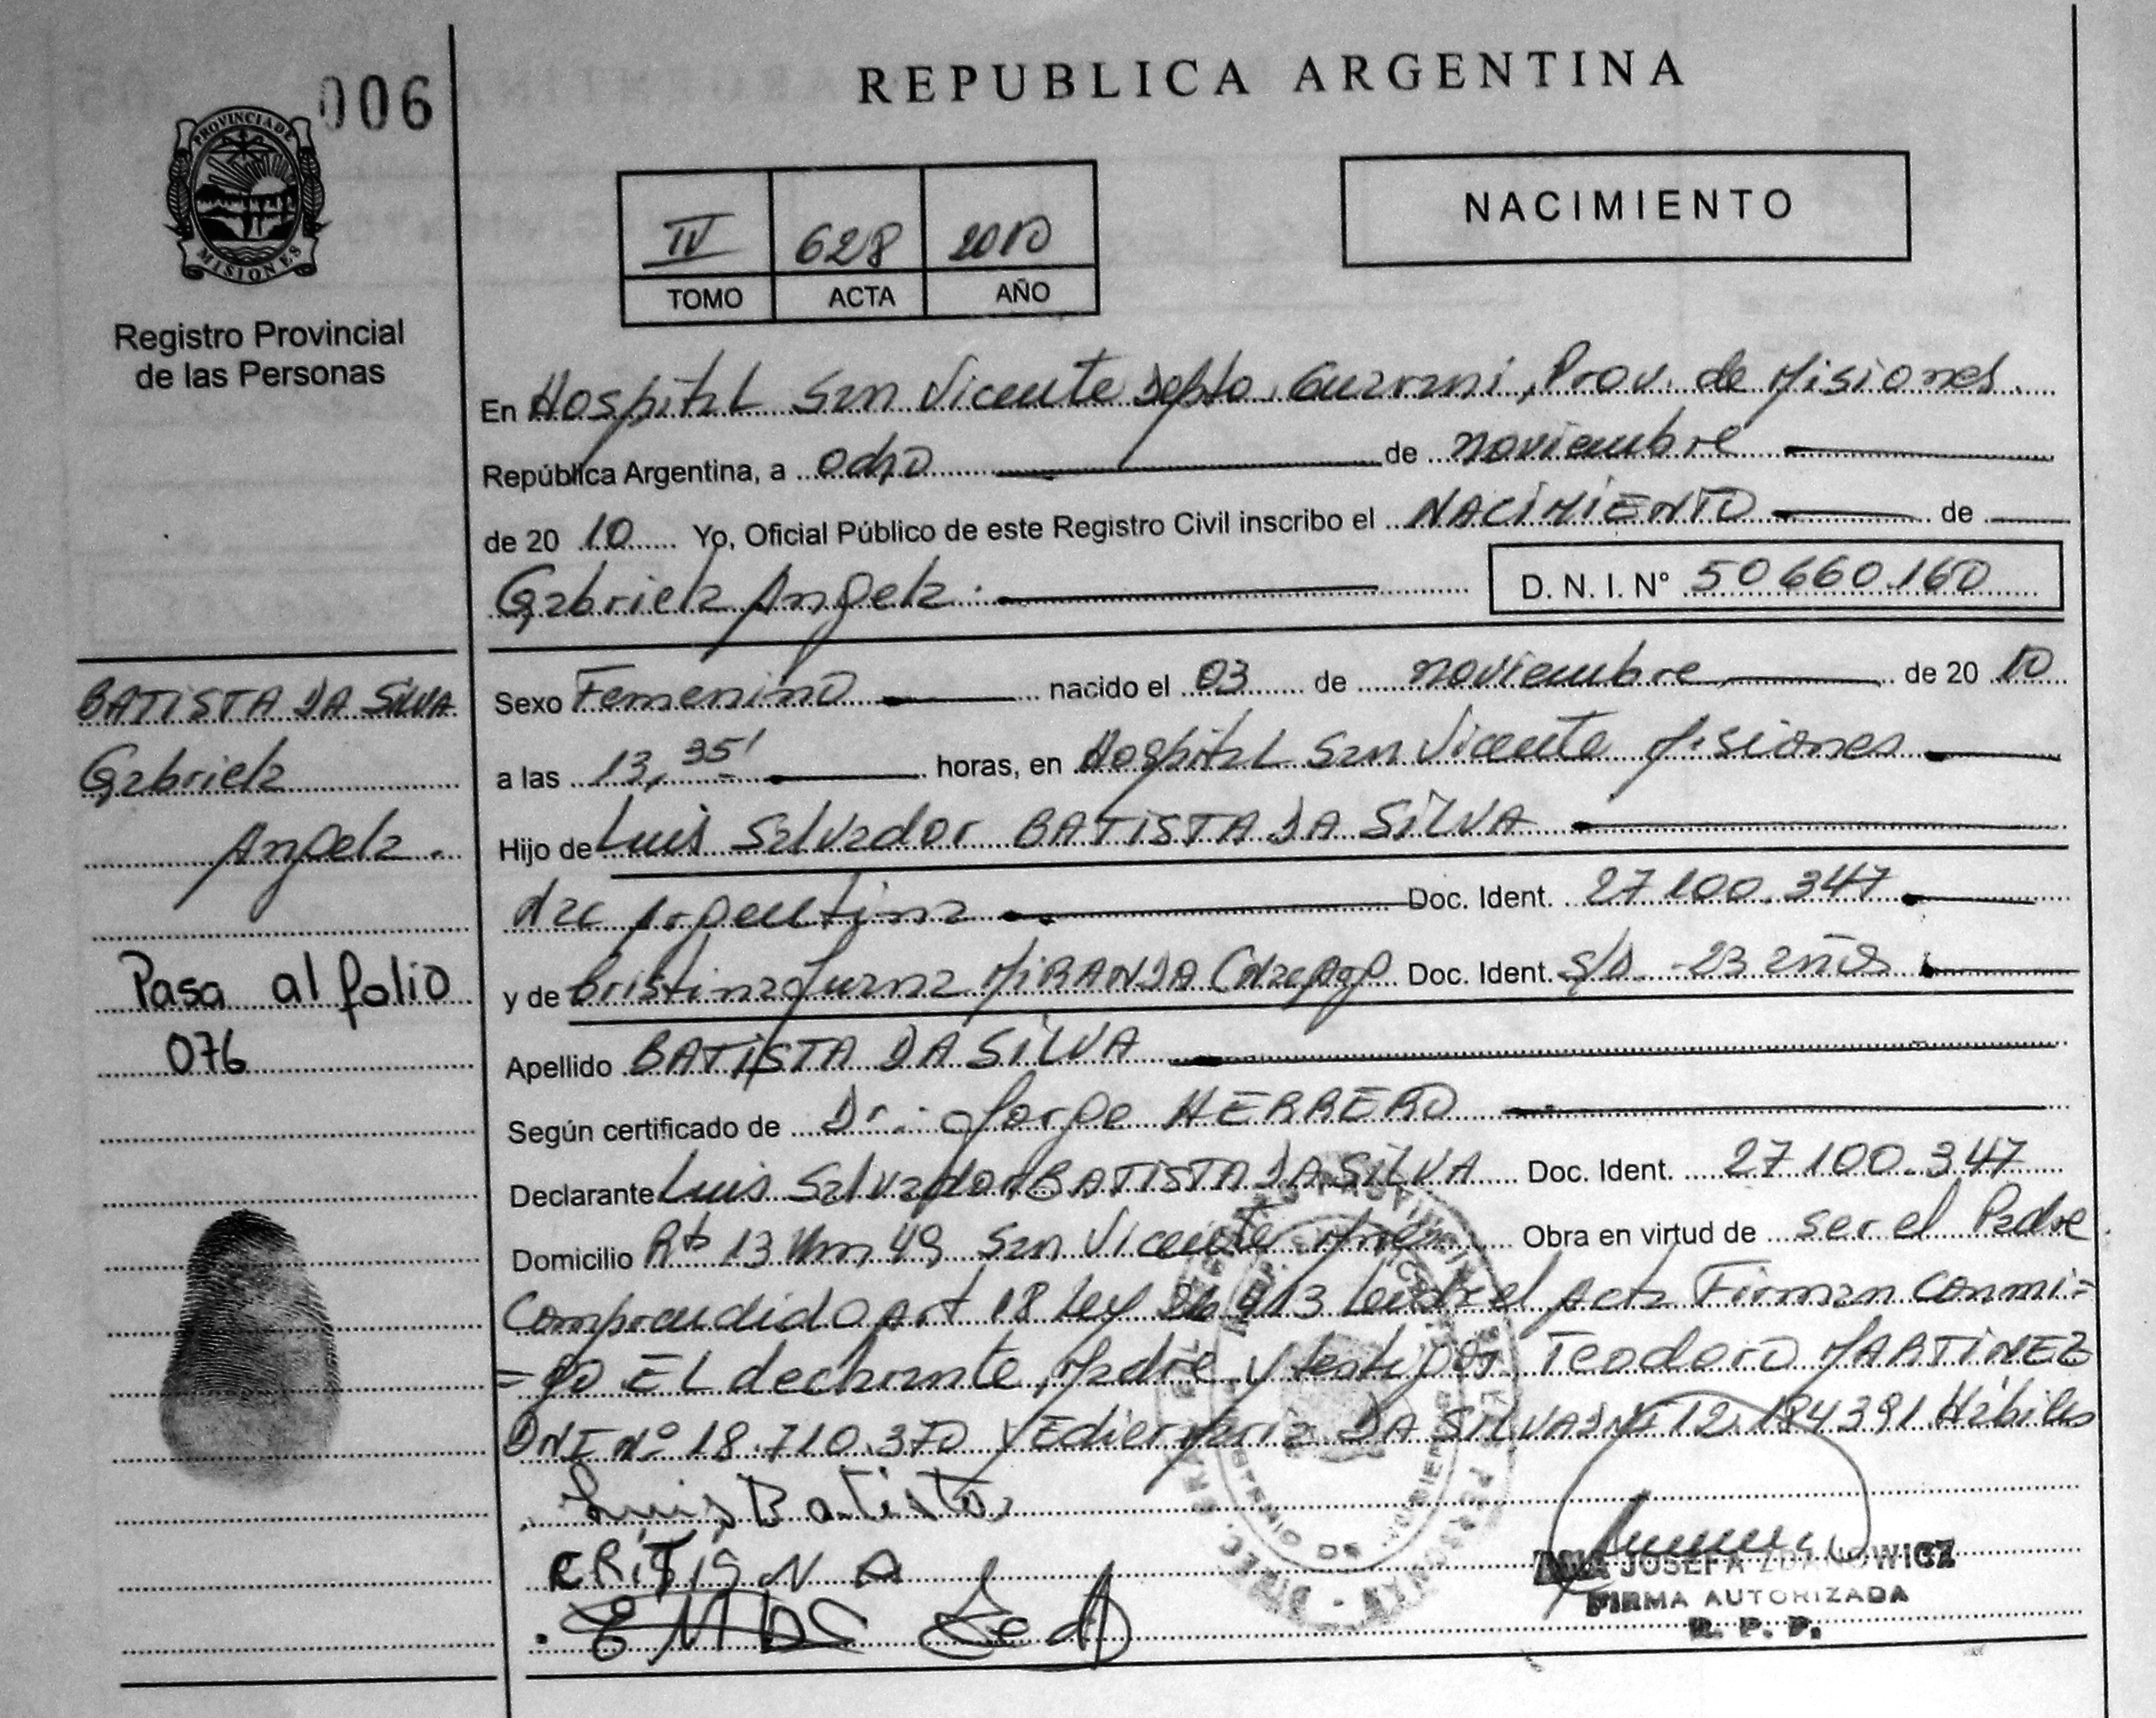 006
REPUBLICA ARGENTINA
PROVINCIA DE
MISIONES
Registro Provincial
de las Personas
IV 628 2010
TOMO ACTA AÑO
NACIMIENTO
En Hospital San Vicente Depto. Guarani, Prov. de Misiones.
República Argentina, a ocho de noviembre
de 20 10 Yo, Oficial Público de este Registro Civil inscribo el NACIMIENTO de
Gabriela Angela. D. N. I. N° 50660.160
BATISTA DA SILVA
Gabriela
Angela.
Pasa al folio
076
Sexo Femenino nacido el 03 de noviembre de 20 10
a las 13,35' horas, en Hospital San Vicente Misiones
Hijo de Luis Salvador BATISTA DA SILVA
Nac Argentina Doc. Ident. 27.100.347
y de Cristina Juana MIRANDA Doc. Ident. S/D. 23 años
Apellido BATISTA DA SILVA
Según certificado de Dr. Jorge HERRERO
Declarante Luis Salvador BATISTA DA SILVA Doc. Ident. 27100.347
Domicilio Rta 13 Km 49 San Vicente Mnes. Obra en virtud de ser el Padre
Comprendido art 18 Ley 26413 Leida el Acta Firman conmi=
=go EL declarante, Madre y testigos Teodoro MARTINEZ
DNI Nº 18.710.370 y Edier Maria DA SILVA DNI 12.184391 Hábiles
Luis Batista
CRISTIGNA
ANA JOSEFA ZDANOWICZ
FIRMA AUTORIZADA
R. P. P.